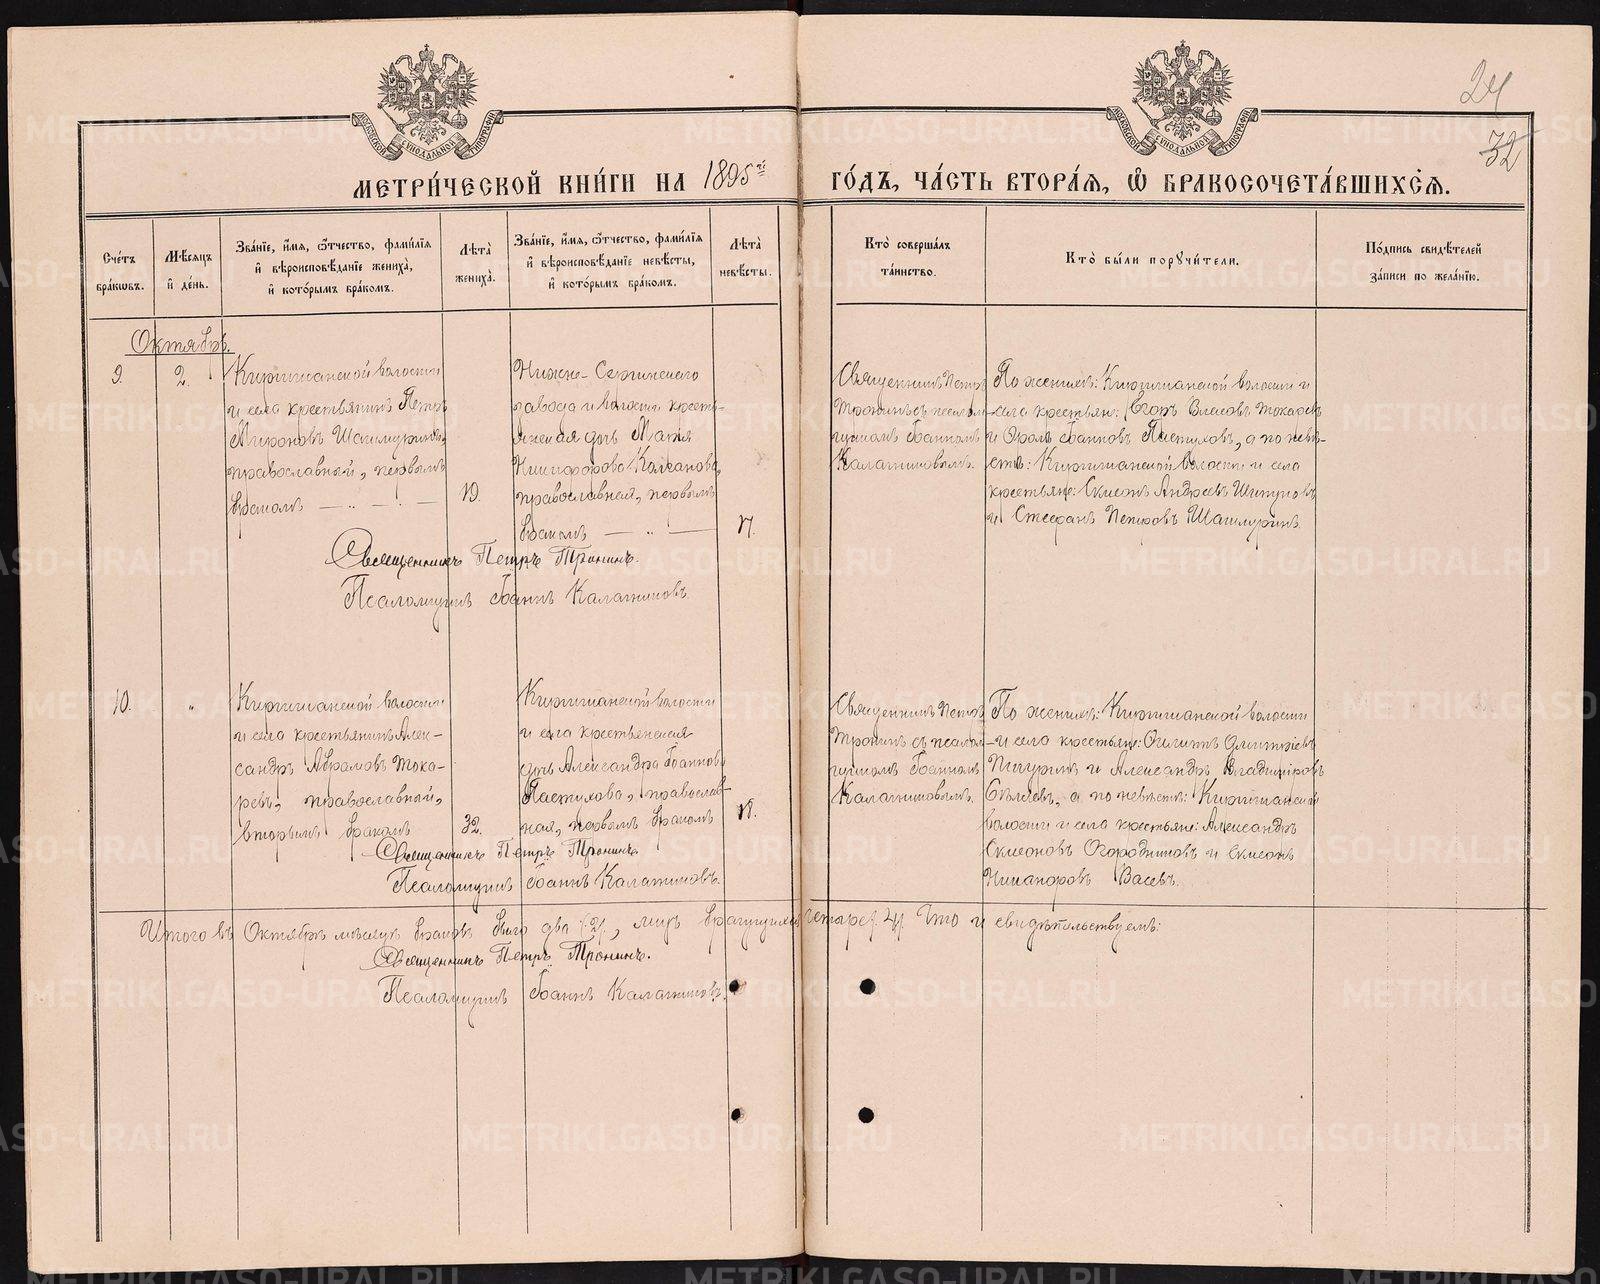 24
32
МОСКОВСКОЙ СѴНОДАЛЬНОЙ ТИПОГРАФІИ
МОСКОВСКОЙ СѴНОДАЛЬНОЙ ТИПОГРАФІИ
МЕТРИ́ЧЕСКОЙ КНИ́ГИ НА 1895й ГО́ДЪ, ЧА́СТЬ ВТОРА́Я, Ѡ БРАКОСОЧЕТА́ВШИХСЯ.
Сче́тъ бра́кѡвъ.
Мѣ́сяцъ и де́нь.
Зва́нїе, и́мя, ѻ́тчество, фами́лїя и вѣроисповѣ́данїе жениха̀, и кото́рымъ бра́комъ.
Лѣта̀ жениха̀.
Зва́нїе, и́мя, ѻ́тчество, фами́лїя и вѣроисповѣ́данїе невѣ́сты, и кото́рымъ бра́комъ.
Лѣта̀ невѣ́сты.
Кто̀ соверша́лъ та́инство.
Кто̀ бы́ли пору́чители.
По́дпись свидѣ́телей за́писи по жела́нїю.
Октябрь.
9.
2.
Киргишанской волости
и села крестьянинъ Петръ
Мироновъ Шашмуринъ,
православный, первымъ
бракомъ
19.
Нижне-Сергинскаго
завода и волости кресть-
янская дочь
Никифорова
православная, первымъ
бракомъ
17.
Священникъ Петръ
Тронинъ съ псалом-
щикомъ Іоанномъ
Калашниковымъ.
По женихѣ: Киргишанской волости и
села крестьян: Егоръ Власовъ Токаревъ
и Фролъ Іоанновъ Пастуховъ, а по невѣ-
стѣ: Киргишанской волости и села
крестьяне: Симеонъ Андреевъ
и Стефанъ Петровъ Шашмуринъ.
Священникъ Петръ Тронинъ.
Псаломщикъ Іоаннъ Калашниковъ.
10.
"
Киргишанской волости
и села крестьянинъ Алек-
сандръ Абрамовъ Тока-
ревъ, православный,
вторымъ бракомъ
32.
Киргишанской волости
и села крестьянская
дочь Александра Іоаннова
Пастухова, православ-
ная, первымъ бракомъ
18.
Священникъ Петръ
Тронинъ съ псалом-
щикомъ Іоанномъ
Калашниковымъ.
По женихѣ: Киргишанской волости
и села крестьяне: Филиппъ Димитріевъ
и Александръ Владиміровъ
Бѣляевъ, а по невѣстѣ: Киргишанской
волости и села крестьяне: Александръ
Симеоновъ Огородниковъ и Симеонъ
Никаноровъ
Священникъ Петръ Тронинъ.
Псаломщикъ Іоаннъ Калашниковъ.
Итого въ Октябрѣ мѣсяцѣ браковъ было два /2/, лицъ брачущихся четыре /4/. Что и свидѣтельствуемъ:
Священникъ Петръ Тронинъ.
Псаломщикъ Іоаннъ Калашниковъ.
METRIKI.GASO-URAL.RU